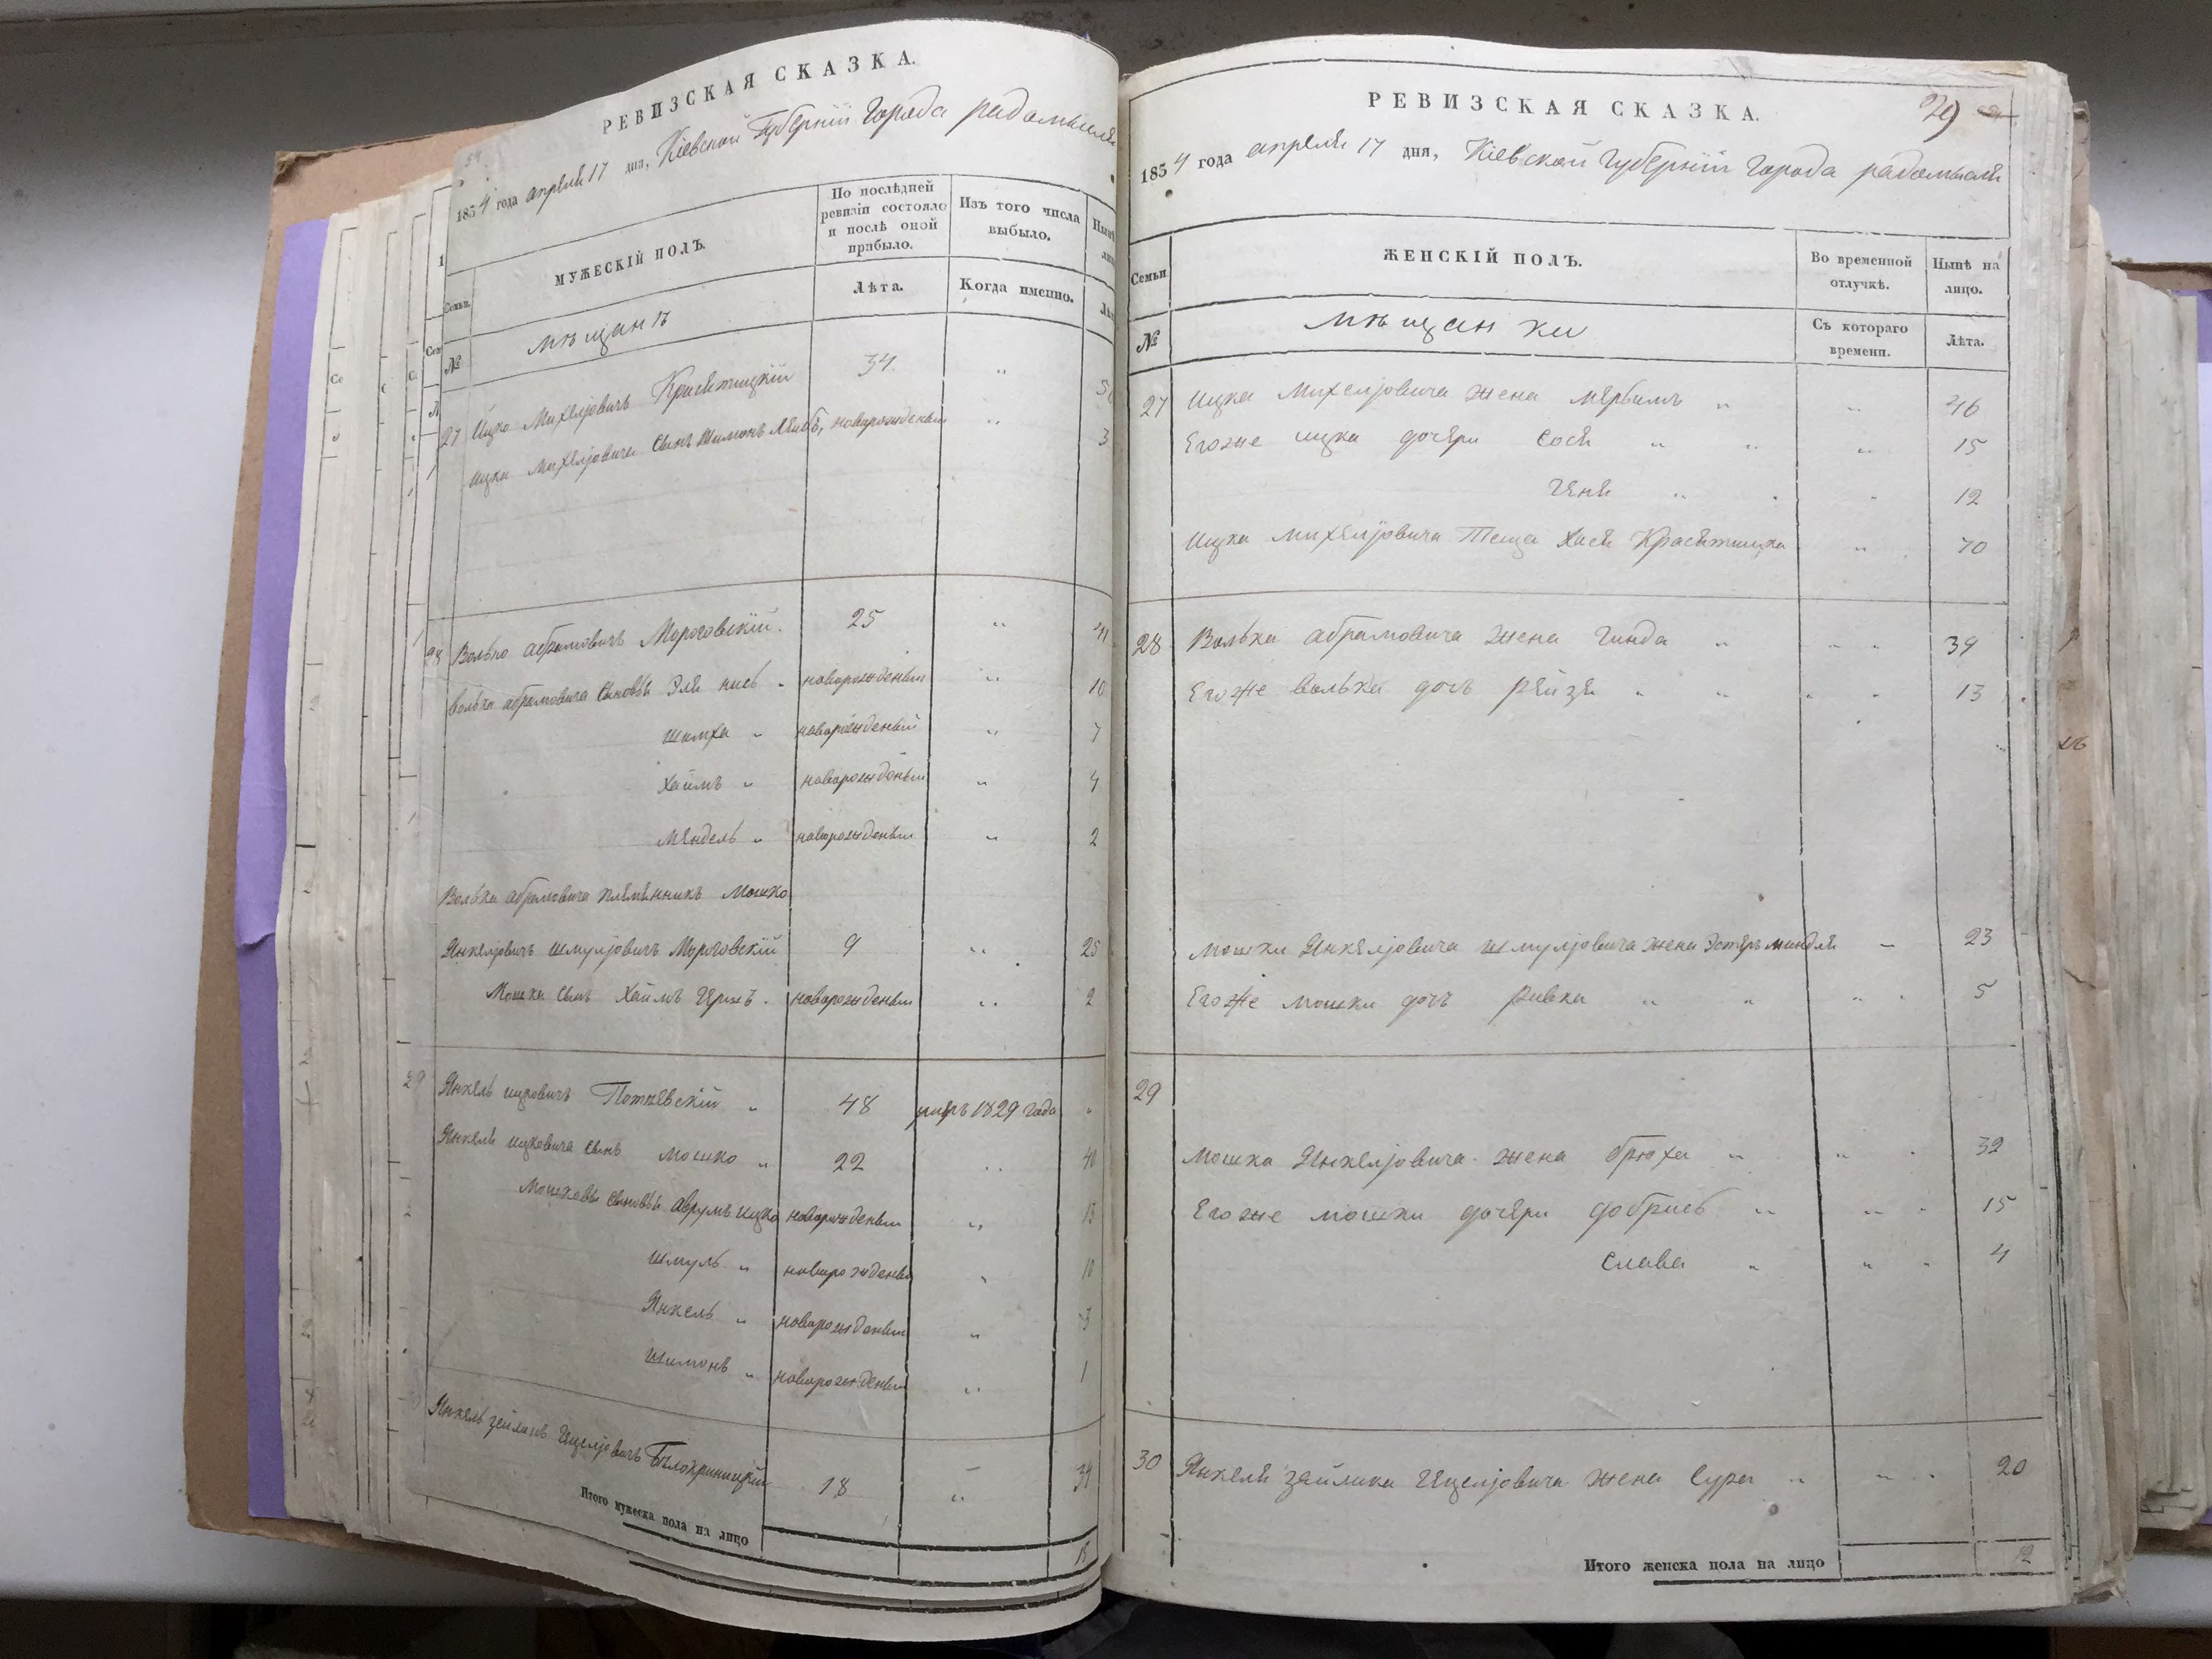 РЕВИЗСКАЯ СКАЗКА.
1854 года апреля 17 дня, Кіевской Губерніи Города радомысля
Семьи.
МУЖЕСКІЙ ПОЛЪ.
По послѣдней ревизіи состояло и послѣ оной прибыло.
Изъ того числа выбыло.
№
мѣщанъ
Лѣта.
Когда именно.
27 Ицко Михелјовичъ 34 "
Ицки Михелјовича сынъ Шимонъ Лейбъ, новорожденый " 3
28 Волько абрамовичъ Мороговскій. 25 " 41
волька абрамовича сыновья Эля " новорожденый " 10
Шимха " новорожденый " 7
Хаимъ " новорожденый " 4
Мендель " новорожденый " 2
Волька абрамовича племенникъ Мошко
Янкелјовичъ шмулјовичъ Мороговскій 9 " 25
Мошки сынъ Хаимъ Гершъ . новорожденый " 2
29 Янкель ицковичъ " 48 умеръ 1829 года "
Янкеля ицковича сынъ мошко " 22 " 40
Мошковы сыновья аврумъ ицко новорожденый " 15
шмуль " новорожденый " 10
Янкель " новорожденый " 3
шимонъ " новорожденый " 1
Янкель Бѣлокриницкій 18 " 34
Итого мужеска пола на лицо 15
РЕВИЗСКАЯ СКАЗКА.
29
1854 года апреля 17 дня, Кіевской Губерніи Города радомысля
Семьи
ЖЕНСКІЙ ПОЛЪ.
Во временной отлучкѣ.
Нынѣ на лицо.
№
мѣщанки
Съ котораго времени.
Лѣта.
27 Ицка Михелјовича жена " " 46
Егоже ицка дочери Сося " " " 15
Геня " . " 12
Ицка михелјовича Теща Хася " 70
28 Волька абрамовича жена Гинда " " " 39
Егоже волька дочь рейзя " " " " 13
мошки Янкелјовича шмулјовича жена Эстеръ миндля " 23
Егоже мошки дочъ Ривка " " " 5
29
мошка Янкелјовича жена брюха " " 32
Егоже мошки дочери добрись " " 15
Слава " " 4
30 Янкеля зейлика жена Сура " " 20
Итого женска пола на лицо 12